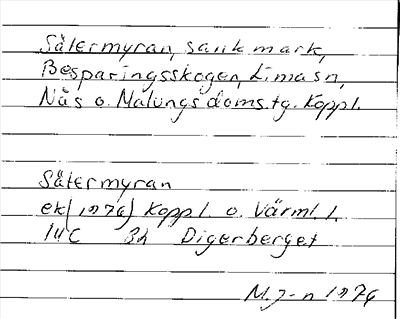 Sätermyran, sank mark,
Besparingsskogen, Lima sn,
Nås o. Malungs domstg. Koppl.
Sätermyran
ek (1976) Koppl. o. Värml. l.
14C 3h Digerberget
M. J-n 1976